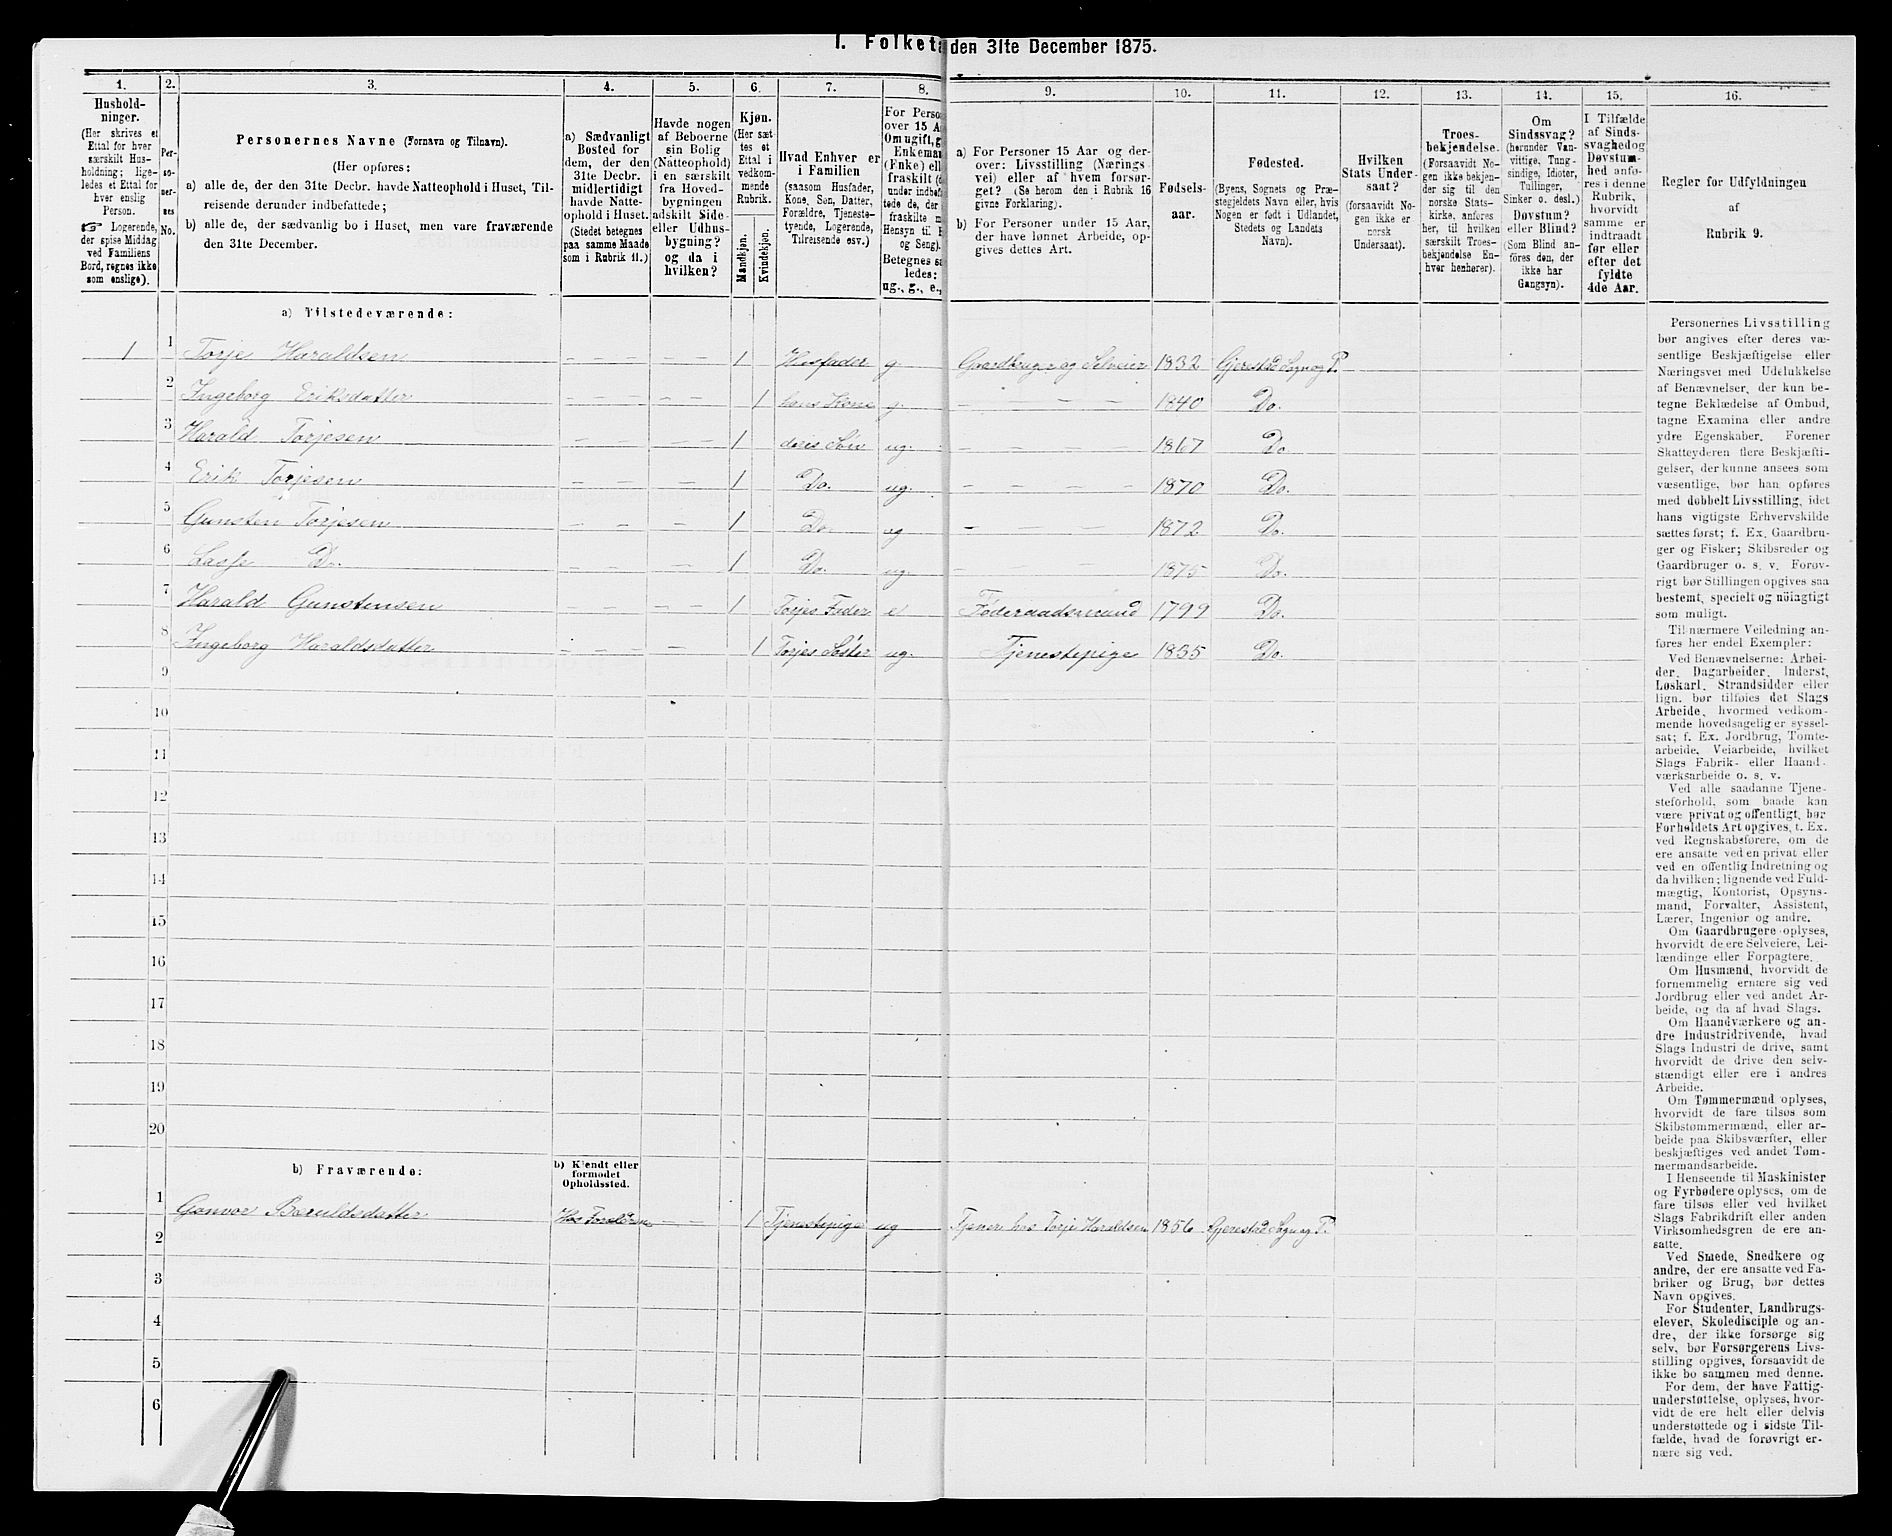 I. Folket den 31te December 1875.
1. 2. 3. 4. 5. 6. 7. 8. 9. 10. 11. 12. 13. 14. 15. 16.
Hushold-
ninger.
(Her skrives et
Ettal for hver
særskilt Hus-
holdning; lige-
ledes et Ettal for
hver enslig
Person.
☞ Logerende,
der spise Middag
ved Familiens
Bord, regnes ikke
som enslige).
Per-
so-
ner-
nes
No.
Personernes Navne (Fornavn og Tilnavn).
(Her opføres:
a) alle de, der den 31te Decbr. havde Natteophold i Huset, Til-
reisende derunder indbefattede;
b) alle de, der sædvanlig bo i Huset, men vare fraværende
den 31te December.
a) Sædvanligt
Bosted for
dem, der den
31te Decbr.
midlertidigt
havde Natte-
ophold i Huset.
(Stedet betegnes
paa samme Maade
som i Rubrik 11.)
Havde nogen
af Beboerne
sin Bolig
(Natteophold)
i en særskilt
fra Hoved-
bygningen
adskilt Side-
eller Udhus-
bygning?
og da i
hvilken?
Kjøn.
(Her sæt-
tes et
Ettal i
vedkom-
mende
Rubrik.
Mandkjøn.
Kvindekjøn.
Hvad Enhver er
i Familien
(saasom Husfader,
Kone, Søn, Datter,
Forældre, Tjeneste-
tyende, Logerende,
Tilreisende osv.)
For Perso
over 15 A
Om ugift, g
Enkema
(Enke) ell
fraskilt (d
under indbef
tede de, der
fraskilte m
Hensyn til. B
og Seng).
Betegnes sa
ledes:
ug., g., e.,
a) For Personer 15 Aar og der-
over: Livsstilling (Nærings
vei) eller af hvem forsør-
get? (Se herom den i Rubrik 16
givne Forklaring).
b) For Personer under 15 Aar,
der have lønnet Arbeide, op-
gives dettes Art.
Fødsels-
aar.
Fødested.
(Byens, Sognets og Præ-
stegjeldets Navn eller, hvis
Nogen er født i Udlandet,
Stedets og Landets
Navn).
Hvilken
Stats Under-
saat?
(forsaavidt No-
gen ikke er
norsk
Undersaat).
Troes-
bekjendelse.
(Forsaavidt No-
gen ikke bekjen-
der sig til den
norske Stats-
kirke, anføres
her, til hvilken
særskilt Troes-
bekjendelse En-
hver henhører).
Om
Sindssvag?
(herunder Van-
vittige, Tung-
sindige, Idioter,
Tullinger,
Sinker o. desl.)
Døvstum?
eller Blind?
(Som Blind an-
føres den, der
ikke har
Gangsyn).
I Tilfælde
af Sinds-
svaghed og
Døvstum-
hed anfø-
res i denne
Rubrik,
hvorvidt
samme er
indtraadt
før eller
efter det
fyldte
4de Aar.
Regler for Udfyldningen
af
Rubrik 9.
a) Tilstedeværende:
1 1 Torje Haraldsen – – – – – 1 Husfader g Gaardbruger og Selveier 1832 Gjerestad Sogn og P.
2 Ingeborg Eriksdatter – – – – – 1 hans Kone g – – – 1840 Do.
3 Harald Torjesen – – – – – 1 deres Søn ug. – – – 1867 Do
4 Erik Torjesen – – – – – 1 Do. ug. – – – 1870 Do.
5 Gunsten Torjesen – – – – – 1 Do. ug – – – 1872 Do.
6 Lasse Do. – – – – – 1 Do. ug. – – – 1875 Do.
7 Harald Gunstensen – – – – – 1 Torjes Fader e Føderaadsmand 1799 Do.
8 Ingeborg Haraldsdatter – – – – – 1 Torjes Søster ug. Tjenestepige 1835 Do.
9
10
11
12
13
14
15
16
17
18
19
20
b) Fraværende:
b) Kjendt eller
formodet
Opholdssted.
1 Gonvor Baruldsdatter Hos Forældrene – – 1 Tjenestepige ug Tjener hos Torje Haraldsen 1856 Gjerestad Sogn og P.
2
3
4
5
6
Personernes Livsstilling
bør angives efter deres væ-
sentlige Beskjæftigelse eller
Næringsvei med Udelukkelse
af Benævnelser, der kun be-
tegne Beklædelse af Ombud,
tagne Examina eller andre
ydre Egenskaber. Forener
Skatteyderen flere Beskjæfti-
gelser, der kunne ansees som
væsentlige, bør han opføres
med dobbelt Livsstilling, idet
hans vigtigste Erhvervskilde
sættes først; f. Ex. Gaardbru-
ger og Fisker; Skibsreder og
Gaardbruger o. s. v. Forøv-
rigt bør Stillingen opgives saa
bestemt, specielt og nöiagtigt
som muligt.
Til nærmere Veiledning an-
føres her endel Exempler:
Ved Benævnelserne: Arbei-
der, Dagarbeider, Inderst,
Løskarl, Strandsidder eller
lign. bør tilføies det Slags
Arbeide, hvormed vedkom-
mende hovedsagelig er syssel-
sat; f. Ex. Jordbrug, Tomte-
arbeide, Veiarbeide, hvilket
Slags Fabrik- eller Haand-
værksarbeide o. s. v.
Ved alle saadanne Tjene-
steforhold, som baade kan
være privat og offentligt, bør
Forholdets Art opgives, t. Ex.
ved Regnskabsførere, om de
ere ansatte ved en privat eller
ved en offentlig Indretning og
da hvilken; lignende ved Fuld-
mægtig, Kontorist, Opsyns-
mand, Forvalter, Assistent,
Lærer, Ingeniør og andre.
Om Gaardbrugere oplyses,
hvorvidt de ere Selveiere, Lei-
lændinge eller Forpagtere.
Om Husmænd, hvorvidt de
fornemmelig ernære sig ved
Jordbrug eller ved andet Ar-
beide, og da af hvad Slags.
Om Haandværkere og an-
dre Industridrivende, hvad
Slags Industri de drive, samt
hvorvidt de drive den selv-
stændigt eller ere i andres
Arbeide.
Om Tømmermænd oplyses,
hvorvidt de fare tilsøs som
Skibstømmermænd, eller ar-
beide paa Skibsværfter, eller
beskjæftiges ved andet Tøm-
mermandsarbeide.
I Henseende til Maskinister
og Fyrbødere oplyses, om de
fare tilsøs eller ved hvilket
Slags Fabrikdrift eller anden
Virksomhedsgren de ere an-
satte.
Ved Smede, Snedkere og
andre, der ere ansatte ved Fa-
briker og Brug, bør dettes
Navn opgives.
For Studenter, Landbrugs-
elever, Skoledisciple og an-
dre, der ikke forsørge sig
selv, bør Forsørgerens Livs-
stilling opgives, forsaavidt de
ikke bo sammen med denne.
For dem, der have Fattig-
understøttelse, oplyses, hvor-
vidt de ere helt eller delvis
understøttede og i sidste Til-
fælde, hvad de forøvrigt er-
nære sig ved.